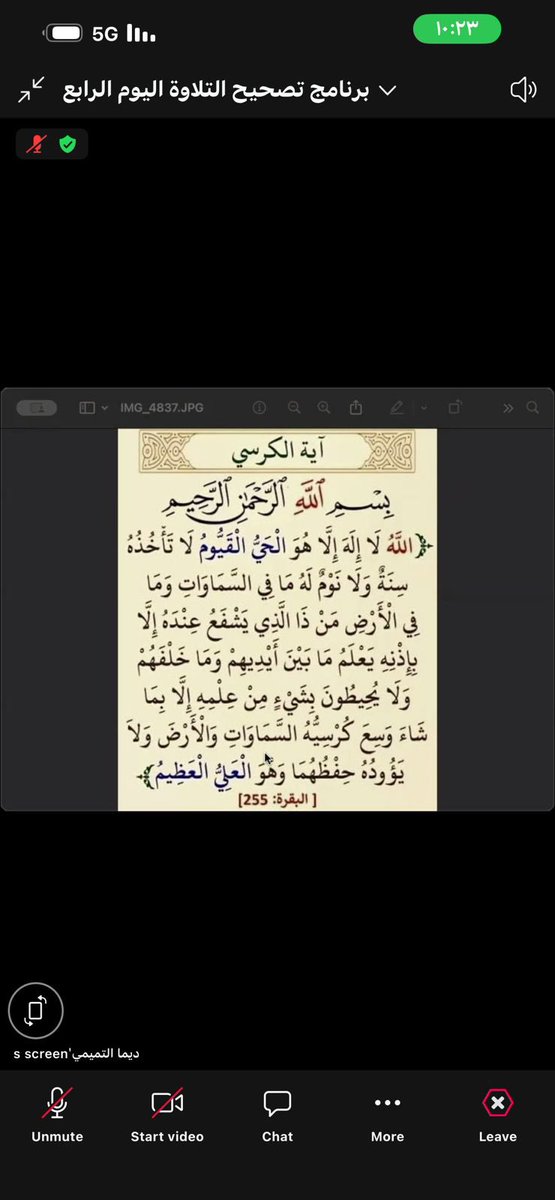 5G
١٠:٢٣
برنامج تصحيح التلاوة اليوم الرابع
IMG_4837.JPG
آية الكرسي
بِسْمِ اللَّهِ الرَّحْمَٰنِ الرَّحِيمِ
﴿اللَّهُ لَا إِلَهَ إِلَّا هُوَ الْحَيُّ الْقَيُّومُ لَا تَأْخُذُهُ
سِنَةٌ وَلَا نَوْمٌ لَهُ مَا فِي السَّمَاوَاتِ وَمَا
فِي الْأَرْضِ مَنْ ذَا الَّذِي يَشْفَعُ عِنْدَهُ إِلَّا
بِإِذْنِهِ يَعْلَمُ مَا بَيْنَ أَيْدِيهِمْ وَمَا خَلْفَهُمْ
وَلَا يُحِيطُونَ بِشَيْءٍ مِنْ عِلْمِهِ إِلَّا بِمَا
شَاءَ وَسِعَ كُرْسِيُّهُ السَّمَاوَاتِ وَالْأَرْضَ وَلَا
يَؤُودُهُ حِفْظُهُمَا وَهُوَ الْعَلِيُّ الْعَظِيمُ﴾
[البقرة: 255]
ديما التميمي's screen
Unmute
Start video
Chat
More
Leave